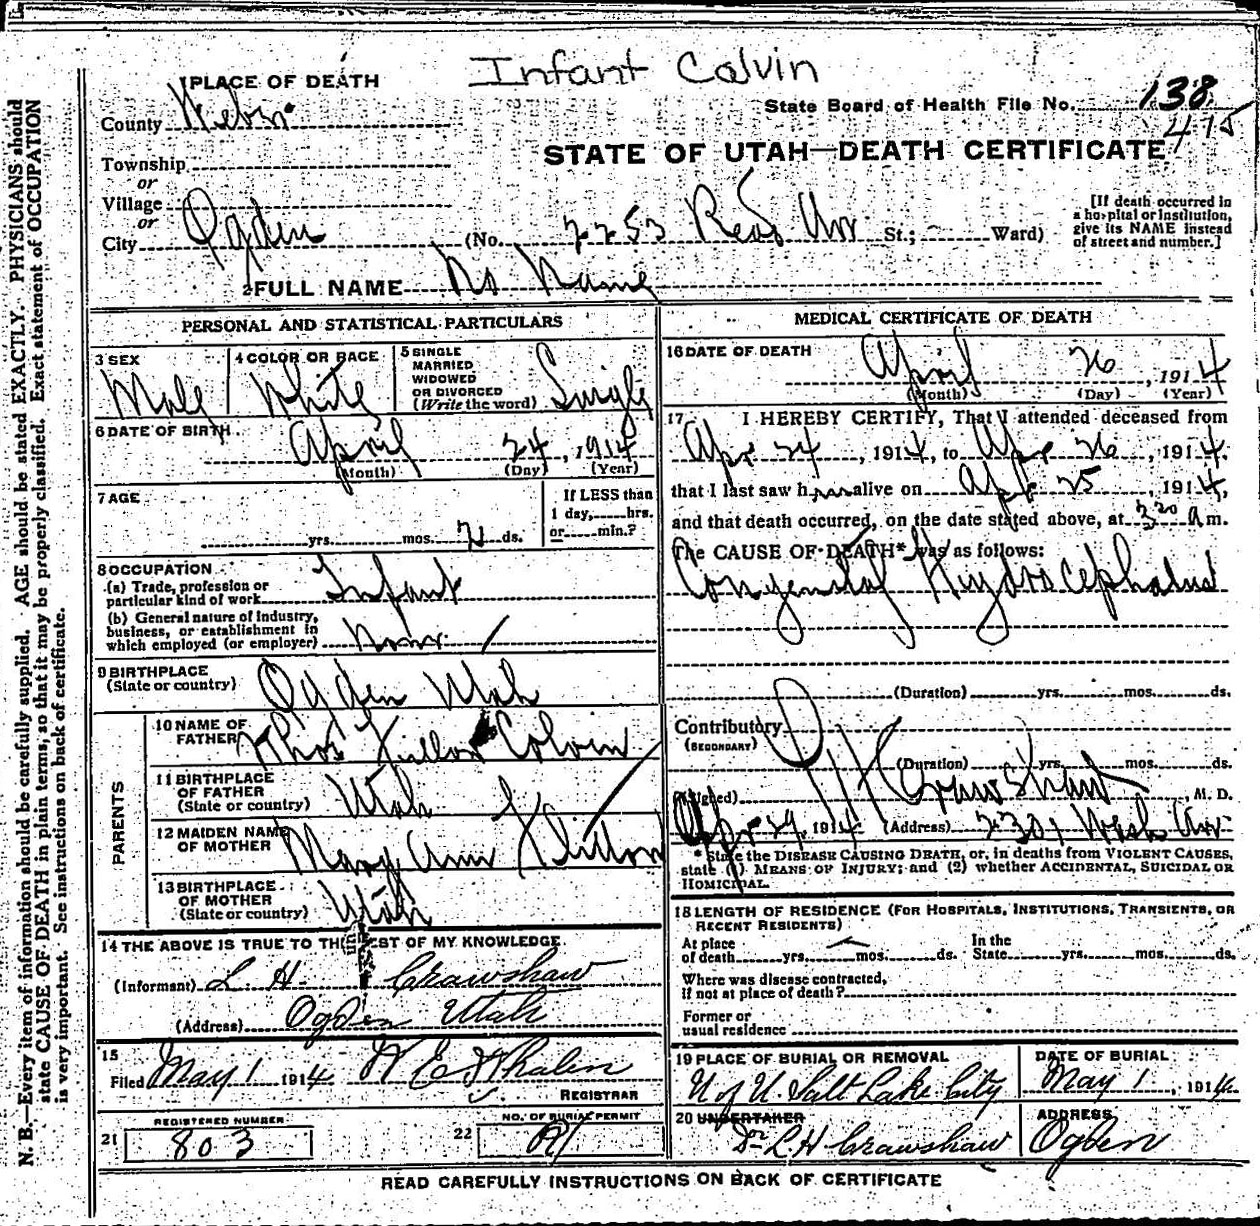 Infant Colvin
1 PLACE OF DEATH
State Board of Health File No. 138
415
County Weber
STATE OF UTAH—DEATH CERTIFICATE
Township
or
Village
or
City Ogden (No. 2253 St.; Ward)
[If death occurred in a hospital or institution, give its NAME instead of street and number.]
2 FULL NAME No Name
PERSONAL AND STATISTICAL PARTICULARS
3 SEX
Male
4 COLOR OR RACE
White
5 SINGLE
MARRIED
WIDOWED
OR DIVORCED
(Write the word) Single
6 DATE OF BIRTH
April 24, 1914
(Month) (Day) (Year)
7 AGE
If LESS than
1 day, hrs.
or min.?
yrs. mos. 2 ds.
8 OCCUPATION
(a) Trade, profession or
particular kind of work Infant
(b) General nature of industry,
business, or establishment in
which employed (or employer) none
9 BIRTHPLACE
(State or country) Ogden Utah
PARENTS
10 NAME OF
FATHER Colvin
11 BIRTHPLACE
OF FATHER
(State or country) Utah
12 MAIDEN NAME
OF MOTHER Mary Ann
13 BIRTHPLACE
OF MOTHER
(State or country) Utah
14 THE ABOVE IS TRUE TO THE BEST OF MY KNOWLEDGE.
(Informant) L. H. Crawshaw
(Address) Ogden Utah
15
Filed May 1 1914 W E Whalen
REGISTRAR
REGISTERED NUMBER
21 803
NO. OF BURIAL PERMIT
22
MEDICAL CERTIFICATE OF DEATH
16 DATE OF DEATH
April 26, 1914
(Month) (Day) (Year)
17 I HEREBY CERTIFY, That I attended deceased from
Apr 24, 1914, to Apr 26, 1914,
that I last saw h alive on Apr 25, 1914,
and that death occurred, on the date stated above, at 3 20 a m.
The CAUSE OF DEATH* was as follows:
Congenital Hydrocephalus
(Duration) yrs. mos. ds.
Contributory
(SECONDARY)
(Duration) yrs. mos. ds.
(Signed) L H Crawshaw, M. D.
Apr 29, 1914 (Address) 2301 Wash Ave
* State the DISEASE CAUSING DEATH, or, in deaths from VIOLENT CAUSES,
state (1) MEANS OF INJURY; and (2) whether ACCIDENTAL, SUICIDAL OR
HOMICIDAL.
18 LENGTH OF RESIDENCE (FOR HOSPITALS, INSTITUTIONS, TRANSIENTS, OR
RECENT RESIDENTS)
At place
of death yrs. mos. ds.
In the
State yrs. mos. ds.
Where was disease contracted,
if not at place of death?
Former or
usual residence
19 PLACE OF BURIAL OR REMOVAL
U of U. Salt Lake City
DATE OF BURIAL
May 1, 1914
20 UNDERTAKER
Dr L H Crawshaw
ADDRESS
Ogden
READ CAREFULLY INSTRUCTIONS ON BACK OF CERTIFICATE
N. B.—Every item of information should be carefully supplied. AGE should be stated EXACTLY. PHYSICIANS should
state CAUSE OF DEATH in plain terms, so that it may be properly classified. Exact statement of OCCUPATION
is very important. See instructions on back of certificate.